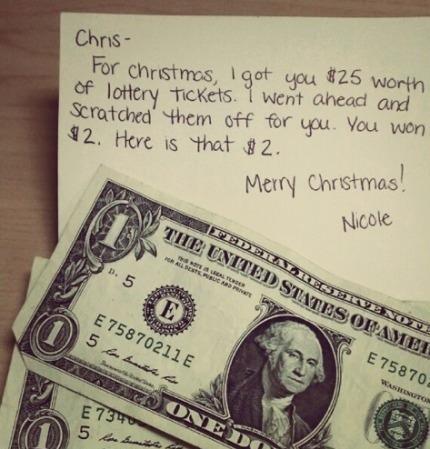 Chris-
For christmas, I got you $25 worth
of lottery tickets. I went ahead and
scratched them off for you. You won
$2. Here is that $2.
Merry Christmas!
Nicole
FEDERAL RESERVE NOTE
THE UNITED STATES OF AME
THIS NOTE IS LEGAL TENDER
FOR ALL DEBTS, PUBLIC AND PRIVATE
1
D. 5
E
E 75870211E
E 75870
5
WASHINGTON
1
ONE DO
E 734
5
1